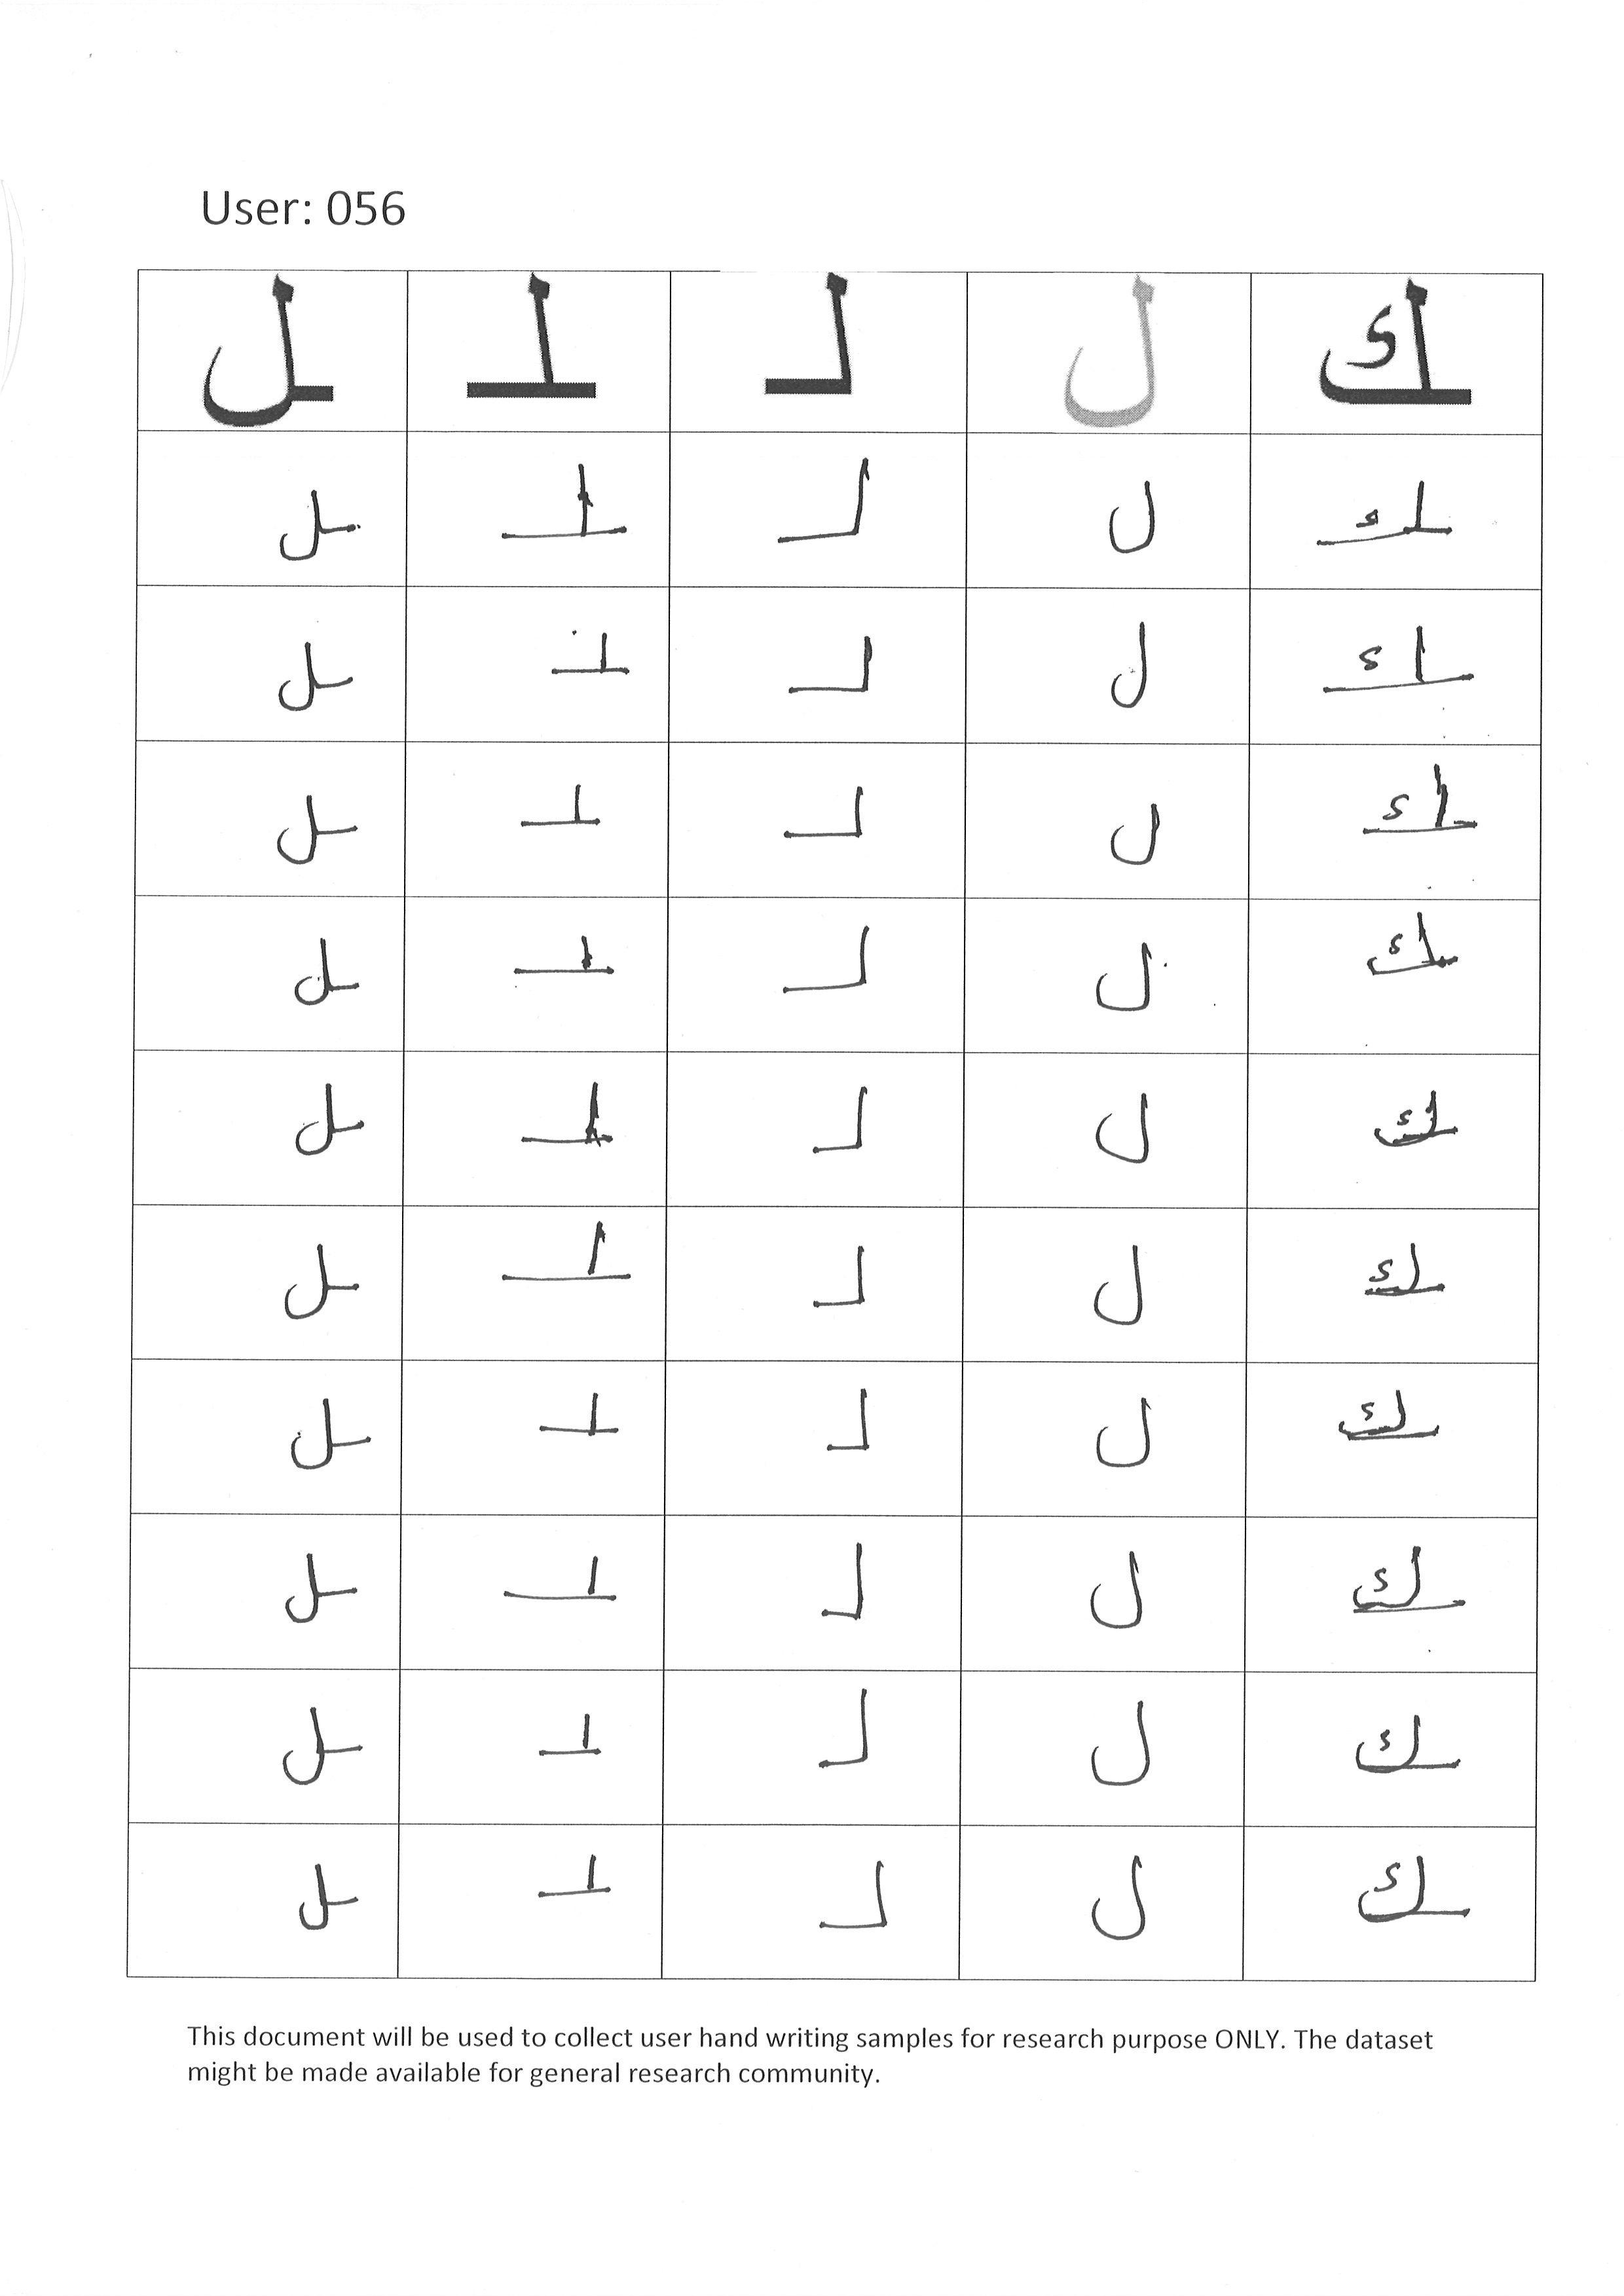 User: 056
ـل ـلـ لـ ل ـك
ـل ـلـ لـ ل ـك
ـل ـلـ لـ ل ـك
ـل ـلـ لـ ل ـك
ـل ـلـ لـ ل ـك
ـل ـلـ لـ ل ـك
ـل ـلـ لـ ل ـك
ـل ـلـ لـ ل ـك
ـل ـلـ لـ ل ـك
ـل ـلـ لـ ل ـك
ـل ـلـ لـ ل ـك
This document will be used to collect user hand writing samples for research purpose ONLY. The dataset
might be made available for general research community.